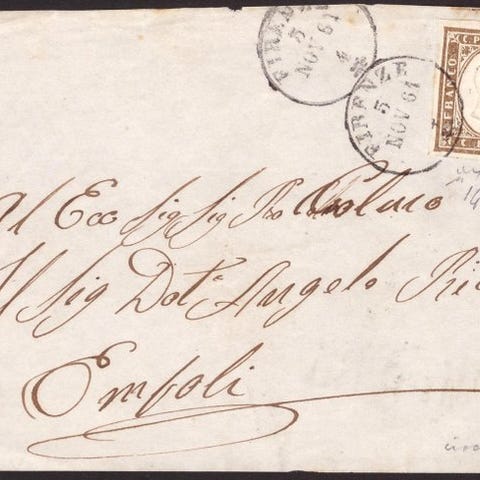 FIRENZE
5
NOV 61
FIRENZE
5
NOV 61
C. P
FRANCO
C
Al Ecc Sig Sig Pro Colmo
Il Sig Dot.ᵉ Angelo
Empoli